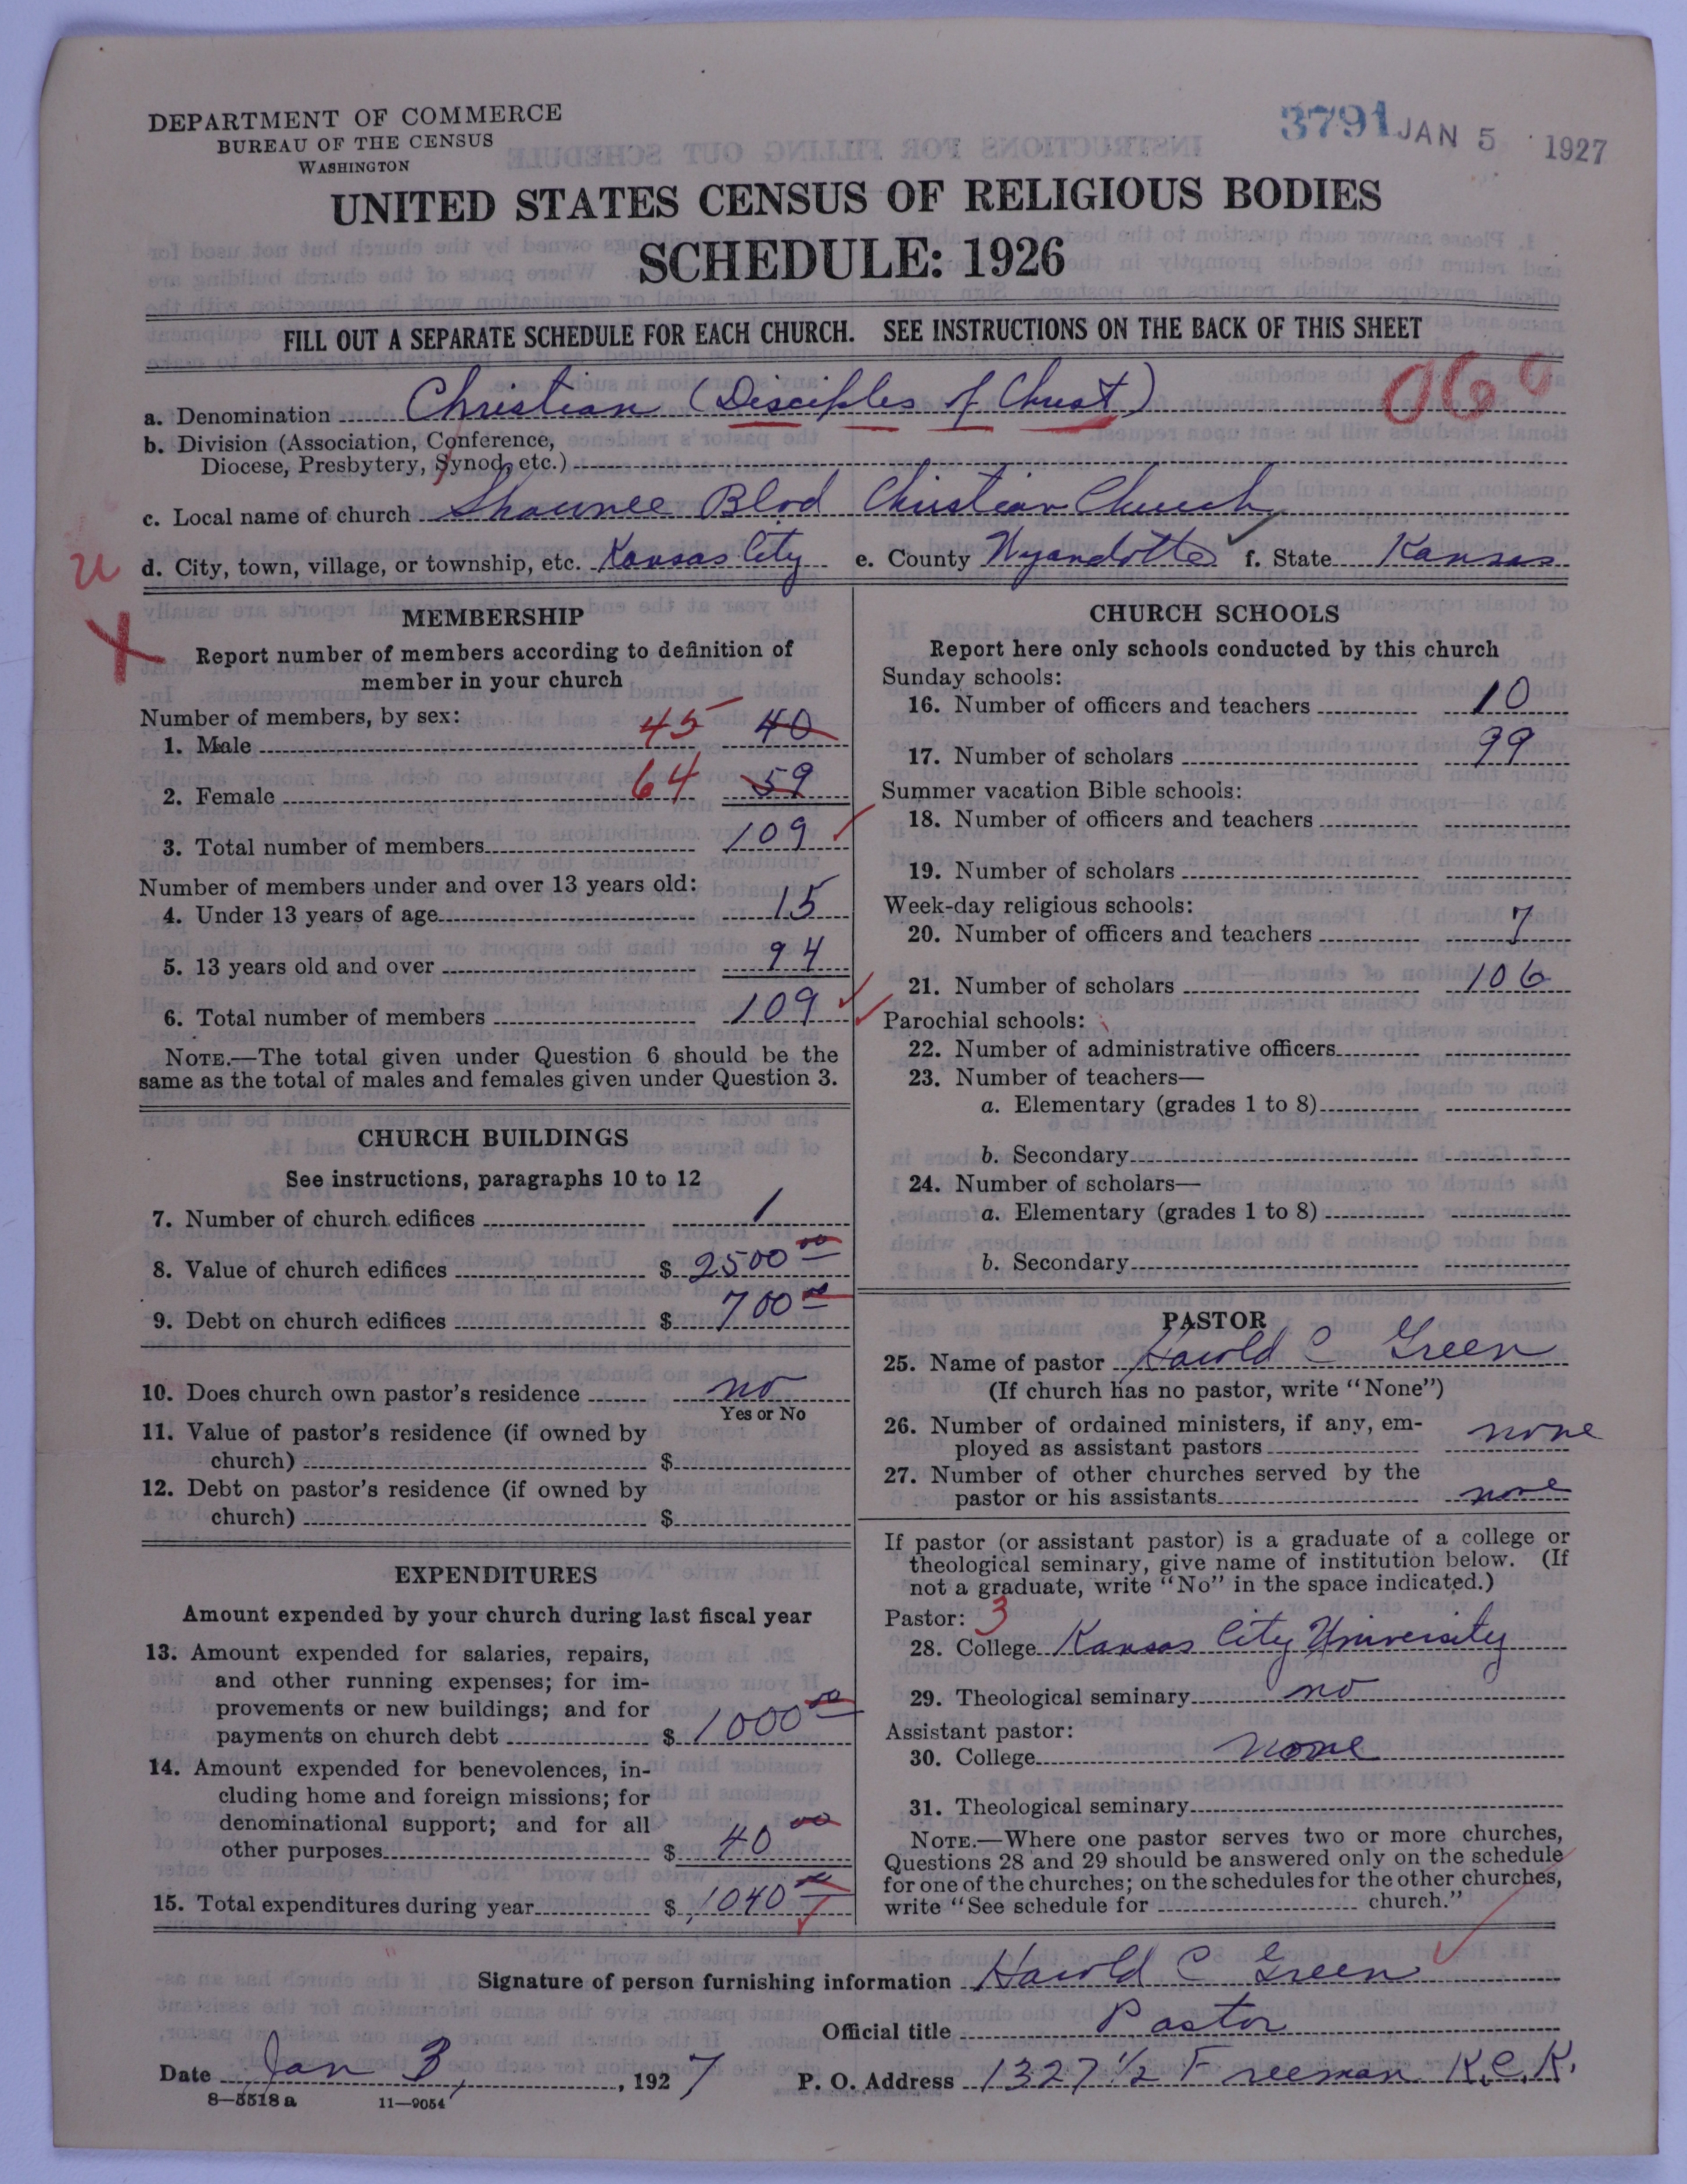 DEPARTMENT OF COMMERCE
BUREAU OF THE CENSUS
WASHINGTON
3791 JAN 5 1927
UNITED STATES CENSUS OF RELIGIOUS BODIES
SCHEDULE: 1926
FILL OUT A SEPARATE SCHEDULE FOR EACH CHURCH. SEE INSTRUCTIONS ON THE BACK OF THIS SHEET
060
a. Denomination Christian (Disciples of Christ)
b. Division (Association, Conference,
Diocese, Presbytery, Synod, etc.)
c. Local name of church Shawnee Blvd Christian Church
d. City, town, village, or township, etc. Kansas City e. County Wyandotte f. State Kansas
MEMBERSHIP
Report number of members according to definition of
member in your church
Number of members, by sex:
1. Male 45 40
2. Female 64 59
3. Total number of members 109
Number of members under and over 13 years old:
4. Under 13 years of age 15
5. 13 years old and over 94
6. Total number of members 109
NOTE.—The total given under Question 6 should be the
same as the total of males and females given under Question 3.
CHURCH BUILDINGS
See instructions, paragraphs 10 to 12
7. Number of church edifices 1
8. Value of church edifices $ 2500 00
9. Debt on church edifices $ 700 00
10. Does church own pastor's residence no
Yes or No
11. Value of pastor's residence (if owned by
church) $
12. Debt on pastor's residence (if owned by
church) $
EXPENDITURES
Amount expended by your church during last fiscal year
13. Amount expended for salaries, repairs,
and other running expenses; for im-
provements or new buildings; and for
payments on church debt $ 1000 00
14. Amount expended for benevolences, in-
cluding home and foreign missions; for
denominational support; and for all
other purposes $ 40 00
15. Total expenditures during year $ 1040 00
CHURCH SCHOOLS
Report here only schools conducted by this church
Sunday schools:
16. Number of officers and teachers 10
17. Number of scholars 99
Summer vacation Bible schools:
18. Number of officers and teachers
19. Number of scholars
Week-day religious schools:
20. Number of officers and teachers 7
21. Number of scholars 106
Parochial schools:
22. Number of administrative officers
23. Number of teachers—
a. Elementary (grades 1 to 8)
b. Secondary
24. Number of scholars—
a. Elementary (grades 1 to 8)
b. Secondary
PASTOR
25. Name of pastor Harold C Green
(If church has no pastor, write "None")
26. Number of ordained ministers, if any, em-
ployed as assistant pastors none
27. Number of other churches served by the
pastor or his assistants none
If pastor (or assistant pastor) is a graduate of a college or
theological seminary, give name of institution below. (If
not a graduate, write "No" in the space indicated.)
Pastor: 3
28. College Kansas City University
29. Theological seminary no
Assistant pastor:
30. College none
31. Theological seminary
NOTE.—Where one pastor serves two or more churches,
Questions 28 and 29 should be answered only on the schedule
for one of the churches; on the schedules for the other churches,
write "See schedule for church."
Signature of person furnishing information Harold C Green
Official title Pastor
Date Jan 3, 1927 P. O. Address 1327 1/2 Freeman K.C.K.
8—5518 a 11—9054